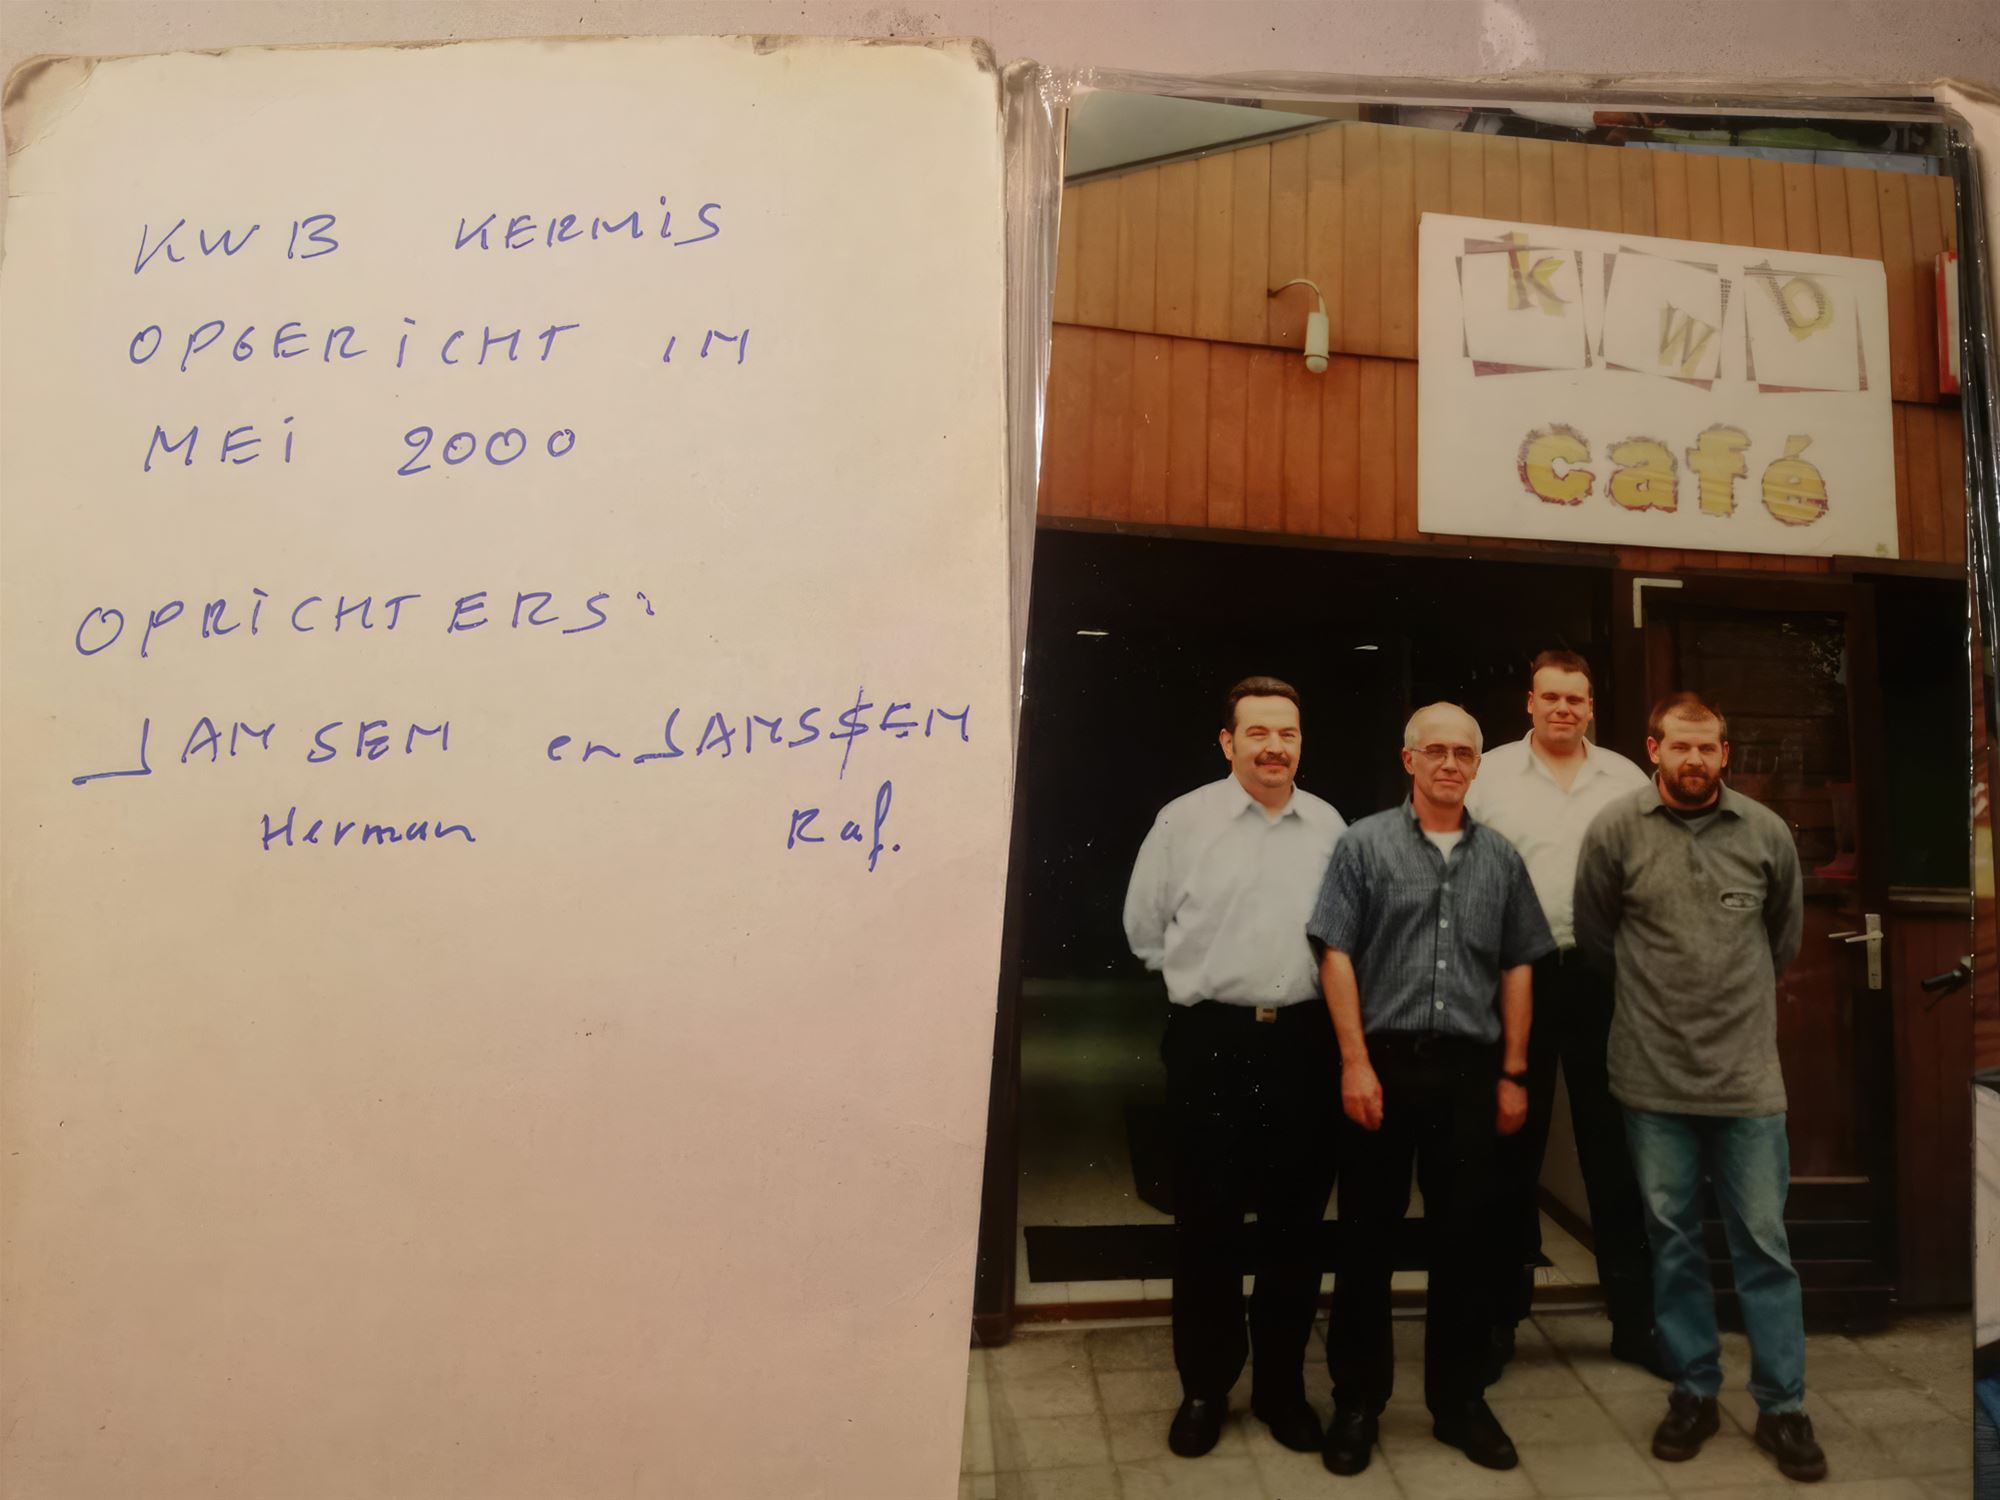 KWB KERMiS
OPGERiCHT iN
MEi 2000
OPRiCHTERS:
JANSEN en JANSSEN
Herman Raf.
kwb
café